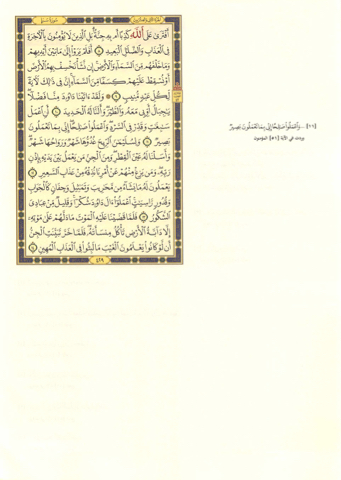 سورة سبإ
الجزء الثاني والعشرون
أَفْتَرَىٰ عَلَى ٱللَّهِ كَذِبًا أَم بِهِۦ جِنَّةٌۢ بَلِ ٱلَّذِينَ لَا يُؤْمِنُونَ بِٱلْءَاخِرَةِ
فِى ٱلْعَذَابِ وَٱلضَّلَٰلِ ٱلْبَعِيدِ ٨ أَفَلَمْ يَرَوْا۟ إِلَىٰ مَا بَيْنَ أَيْدِيهِمْ
وَمَا خَلْفَهُم مِّنَ ٱلسَّمَآءِ وَٱلْأَرْضِ إِن نَّشَأْ نَخْسِفْ بِهِمُ ٱلْأَرْضَ
أَوْ نُسْقِطْ عَلَيْهِمْ كِسَفًا مِّنَ ٱلسَّمَآءِ إِنَّ فِى ذَٰلِكَ لَءَايَةً
لِّكُلِّ عَبْدٍ مُّنِيبٍ ٩ وَلَقَدْ ءَاتَيْنَا دَاوُۥدَ مِنَّا فَضْلًا
يَٰجِبَالُ أَوِّبِى مَعَهُۥ وَٱلطَّيْرَ وَأَلَنَّا لَهُ ٱلْحَدِيدَ ١٠ أَنِ ٱعْمَلْ
سَٰبِغَٰتٍ وَقَدِّرْ فِى ٱلسَّرْدِ وَٱعْمَلُوا۟ صَٰلِحًا إِنِّى بِمَا تَعْمَلُونَ
بَصِيرٌ ١١ وَلِسُلَيْمَٰنَ ٱلرِّيحَ غُدُوُّهَا شَهْرٌ وَرَوَاحُهَا شَهْرٌ
وَأَسَلْنَا لَهُۥ عَيْنَ ٱلْقِطْرِ وَمِنَ ٱلْجِنِّ مَن يَعْمَلُ بَيْنَ يَدَيْهِ بِإِذْنِ
رَبِّهِۦ وَمَن يَزِغْ مِنْهُمْ عَنْ أَمْرِنَا نُذِقْهُ مِنْ عَذَابِ ٱلسَّعِيرِ ١٢
يَعْمَلُونَ لَهُۥ مَا يَشَآءُ مِن مَّحَٰرِيبَ وَتَمَٰثِيلَ وَجِفَانٍ كَٱلْجَوَابِ
وَقُدُورٍ رَّاسِيَٰتٍ ٱعْمَلُوٓا۟ ءَالَ دَاوُۥدَ شُكْرًا وَقَلِيلٌ مِّنْ عِبَادِىَ
ٱلشَّكُورُ ١٣ فَلَمَّا قَضَيْنَا عَلَيْهِ ٱلْمَوْتَ مَا دَلَّهُمْ عَلَىٰ مَوْتِهِۦٓ
إِلَّا دَآبَّةُ ٱلْأَرْضِ تَأْكُلُ مِنسَأَتَهُۥ فَلَمَّا خَرَّ تَبَيَّنَتِ ٱلْجِنُّ
أَن لَّوْ كَانُوا۟ يَعْلَمُونَ ٱلْغَيْبَ مَا لَبِثُوا۟ فِى ٱلْعَذَابِ ٱلْمُهِينِ ١٤
٤٢٩
[١١] ...وَٱعْمَلُوا۟ صَٰلِحًا إِنِّى بِمَا تَعْمَلُونَ بَصِيرٌ
وردت في الآية [٥١] المؤمنون